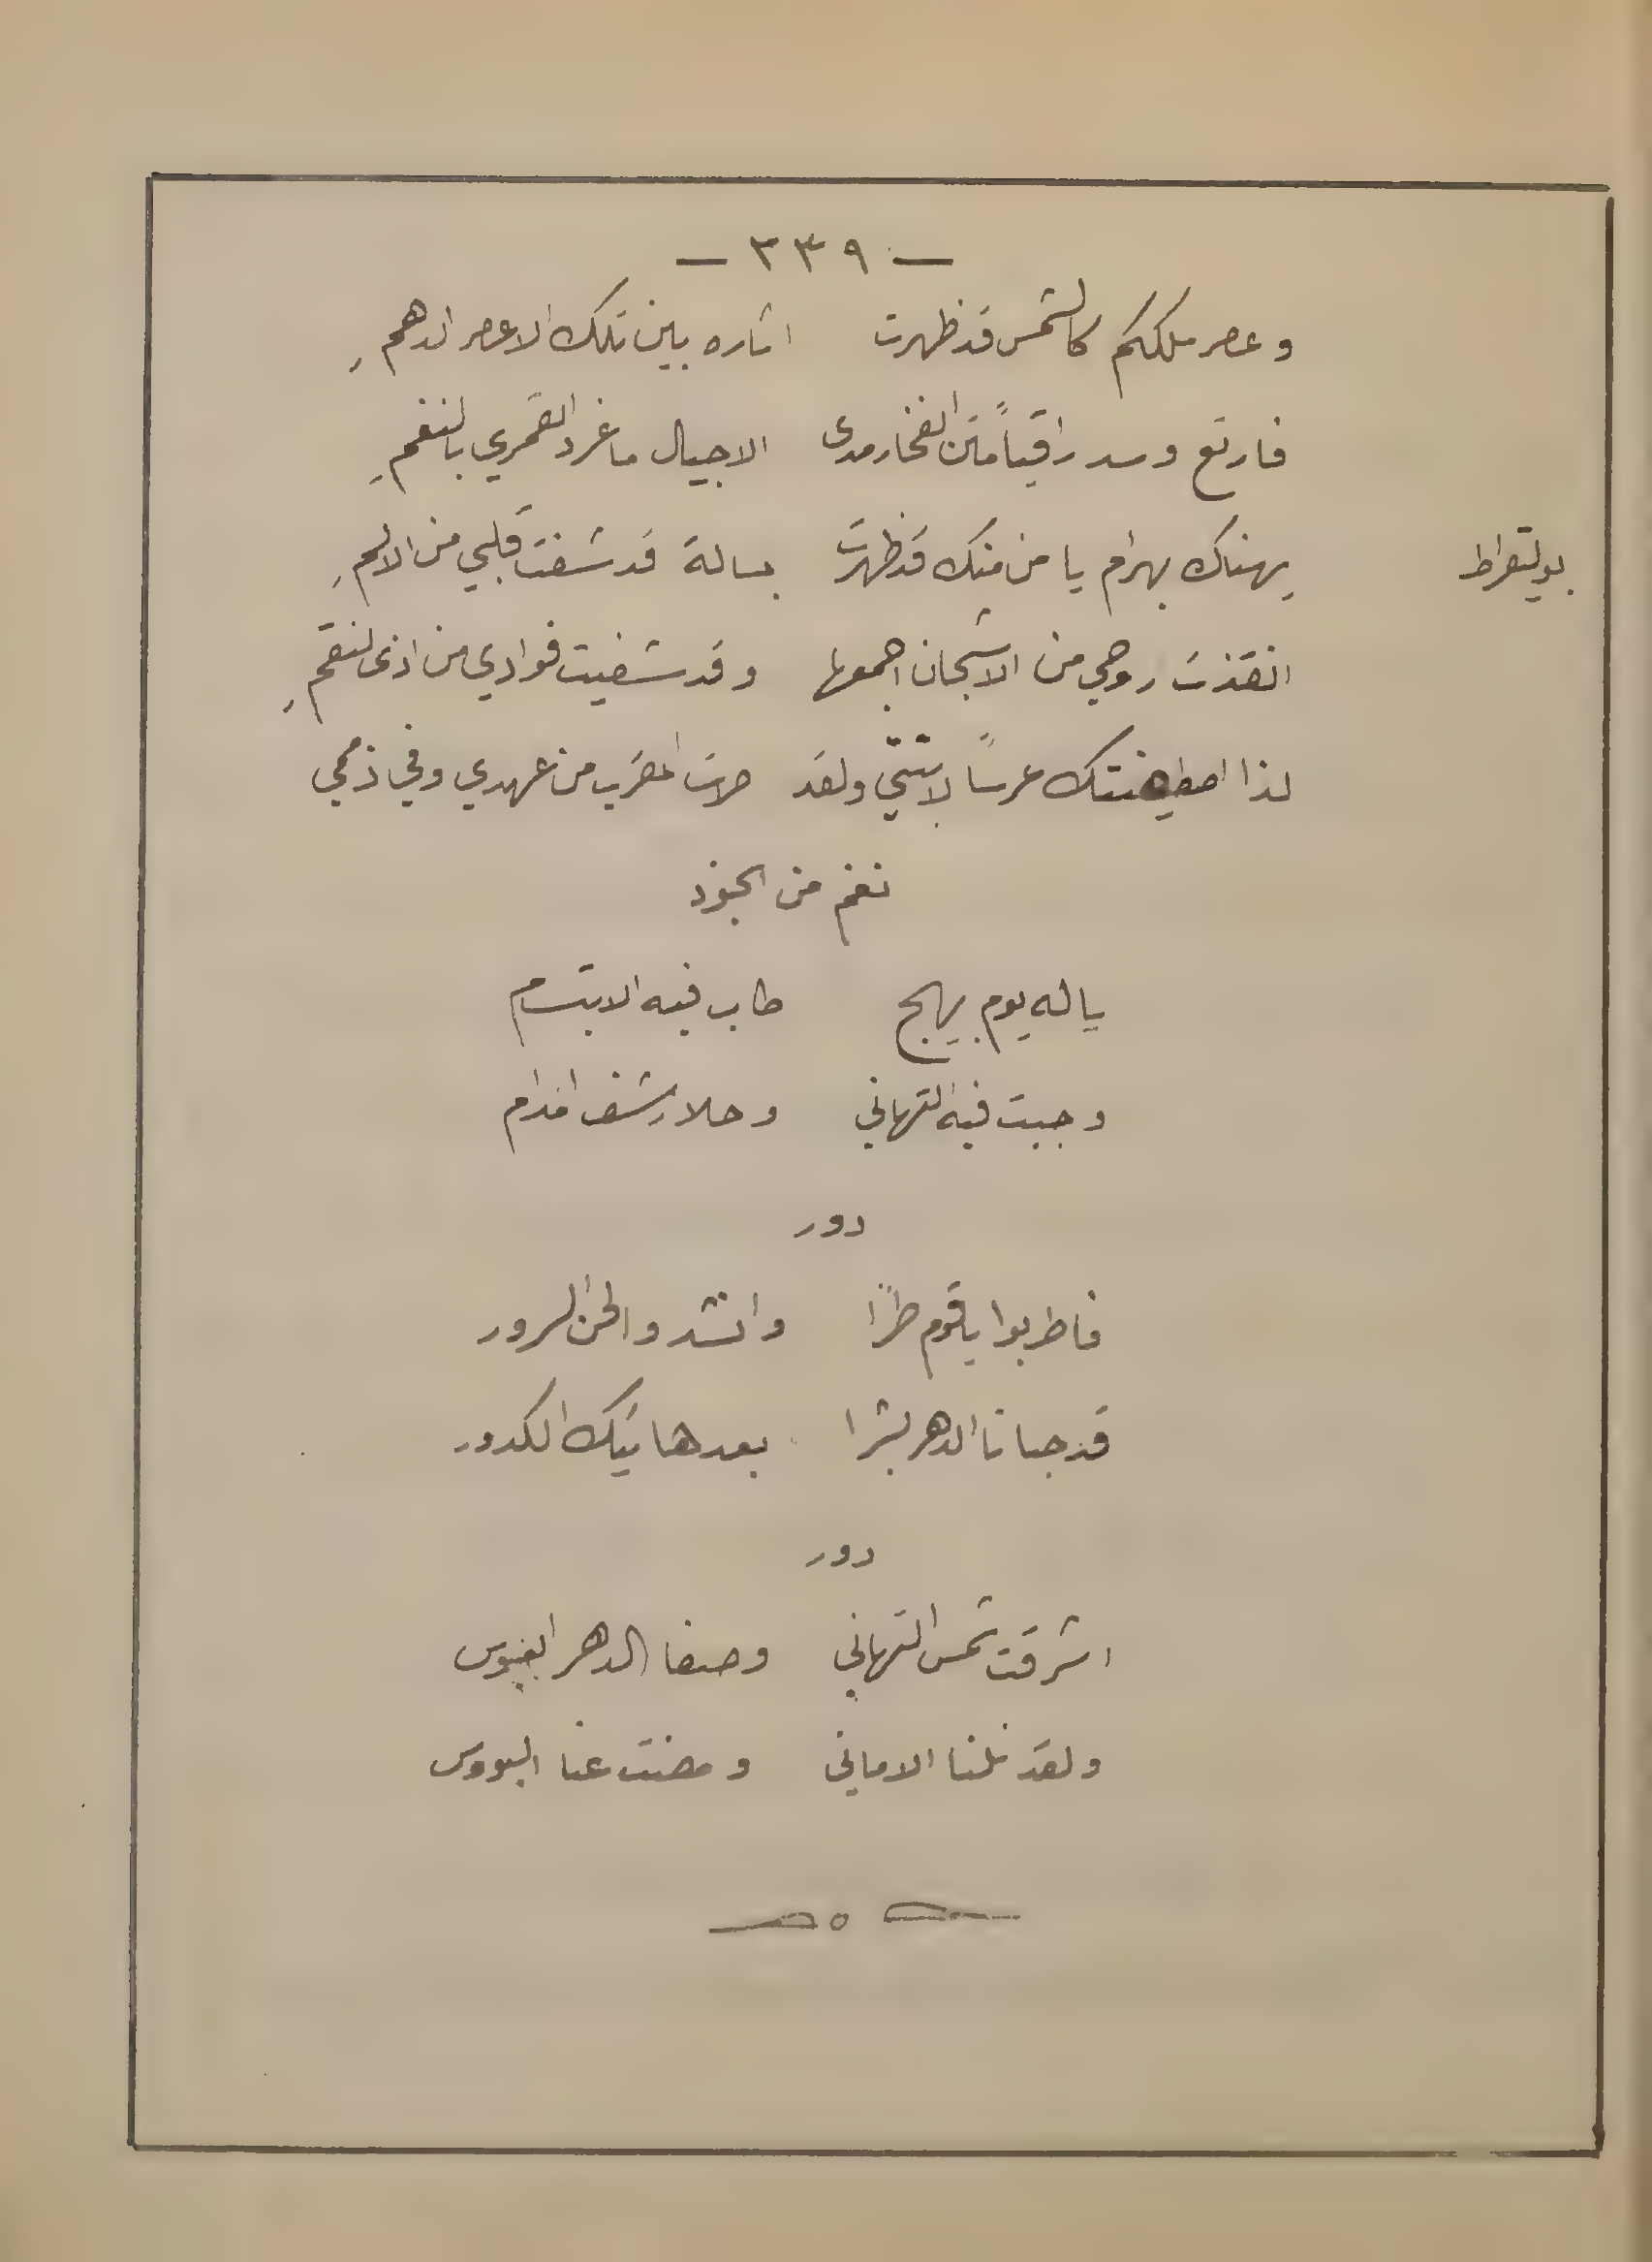 — ٣٣٩ —
وعصر ملككم كالشمس قد ظهرت اثاره بين تلك الاعصر الدهمِ
فارتع وسد راقياً متن الفخار مدى الاجيال ما غرد القمري بالنغمِ
بولتقراط يهناك بهرام يا من منك قد ظهرت بسالة قد شفت قلبي من الالمِ
انقذت روحي من الاشجان اجمعها وقد شفيت فوادي من اذى النقمِ
لذا اصطفيتك عرساً لابنتي ولقد صرت المقرب من عهدي وفي ذممي
نغم من الجنود
ياله يوم بهيج طاب فيه الابتسام
وجبت فيه التهاني وحلا رشف المدام
دور
فاطربوا ياقوم طرًا وانشدوا لحن السرور
قد حبانا الدهر بشرا بعد هاتيك الكدور
دور
اشرقت شمس التهاني وصفا الدهر العبوس
ولقد نلنا الاماني ومضت عنا البووس